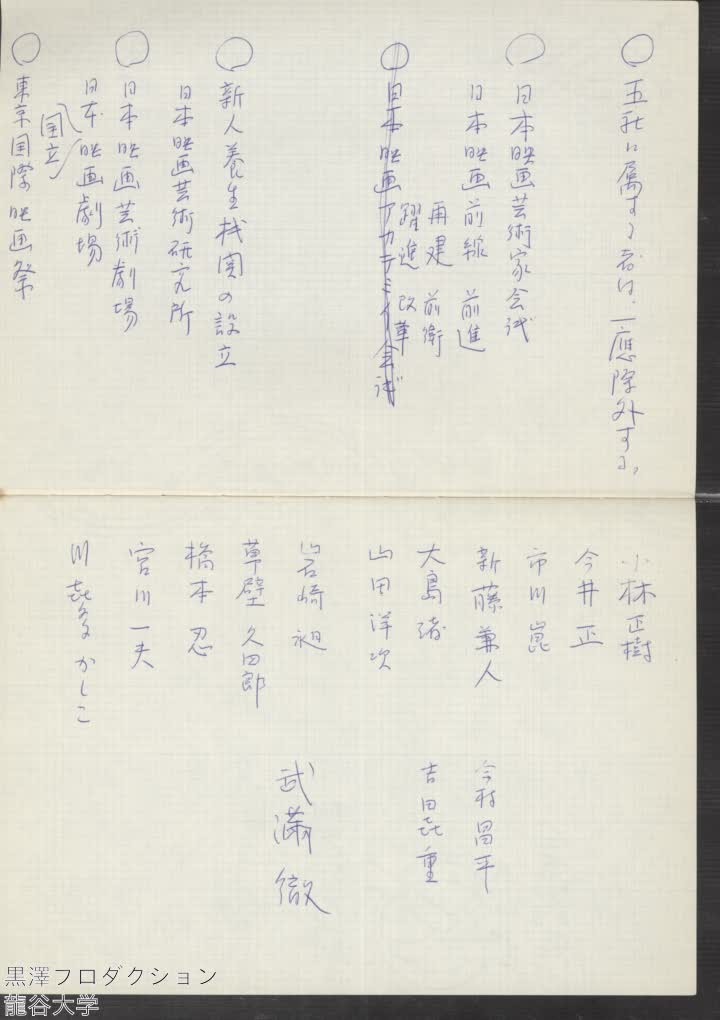 ○ 五社に属する者は、一應除外する。
○ 日本映画芸術家会議
日本映画前線 前進
再建 前衛
躍進 改革
○ 日本映画アカデミイ会議
○ 新人養生机関の設立
日本映画芸術研究所
○ 日本映画芸術劇場
日本映画劇場
国立
○ 東京国際映画祭
小林正樹
今井正
市川崑
新藤兼人 今村昌平
大島渚 吉田喜重
山田洋次
岩崎昶
草壁久四郎
武満徹
橋本忍
宮川一夫
川喜多かしこ
黒澤プロダクション
龍谷大学